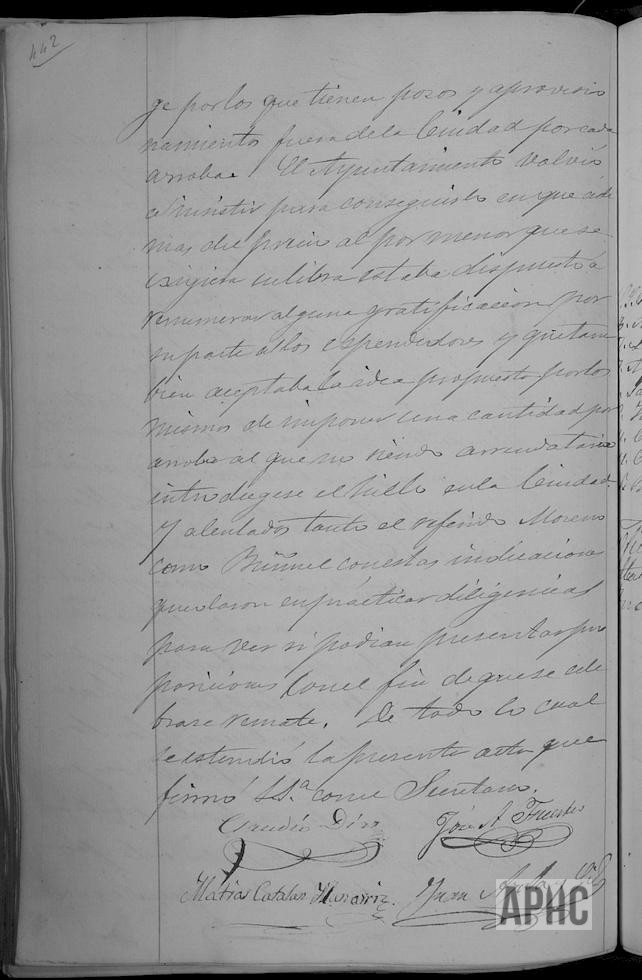 442
ge por los que tienen pozos y aprovisio
namiento fuera de la Ciudad por cada
arroba. El Ayuntamiento volvió
á insistir para conseguirlo en que ade
mas del precio al por menor que se
exigiera en libra estaba dispuesto á
renumerar alguna gratificacion por
su parte a los espendedores y que tam
bien aceptaba la idea propuesta por los
mismos de imponer una cantidad por
arroba al que no siendo arrendatario
introdugese el hielo en la Ciudad.
Y alentados tanto el referido Moreno
como Buñuel con estas indicaciones
quedaron en practicar diligencias
para ver si podian presentar pro
posiciones con el fin de que se cele
brase remate. De todo lo cual
se estendió la presente acta que
firmó S.Sª. con el Secretario.
José A. Fuertes
Matias Catalan
Juan
APHC